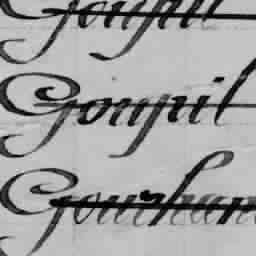 Goupil
Goupil
Gourhan